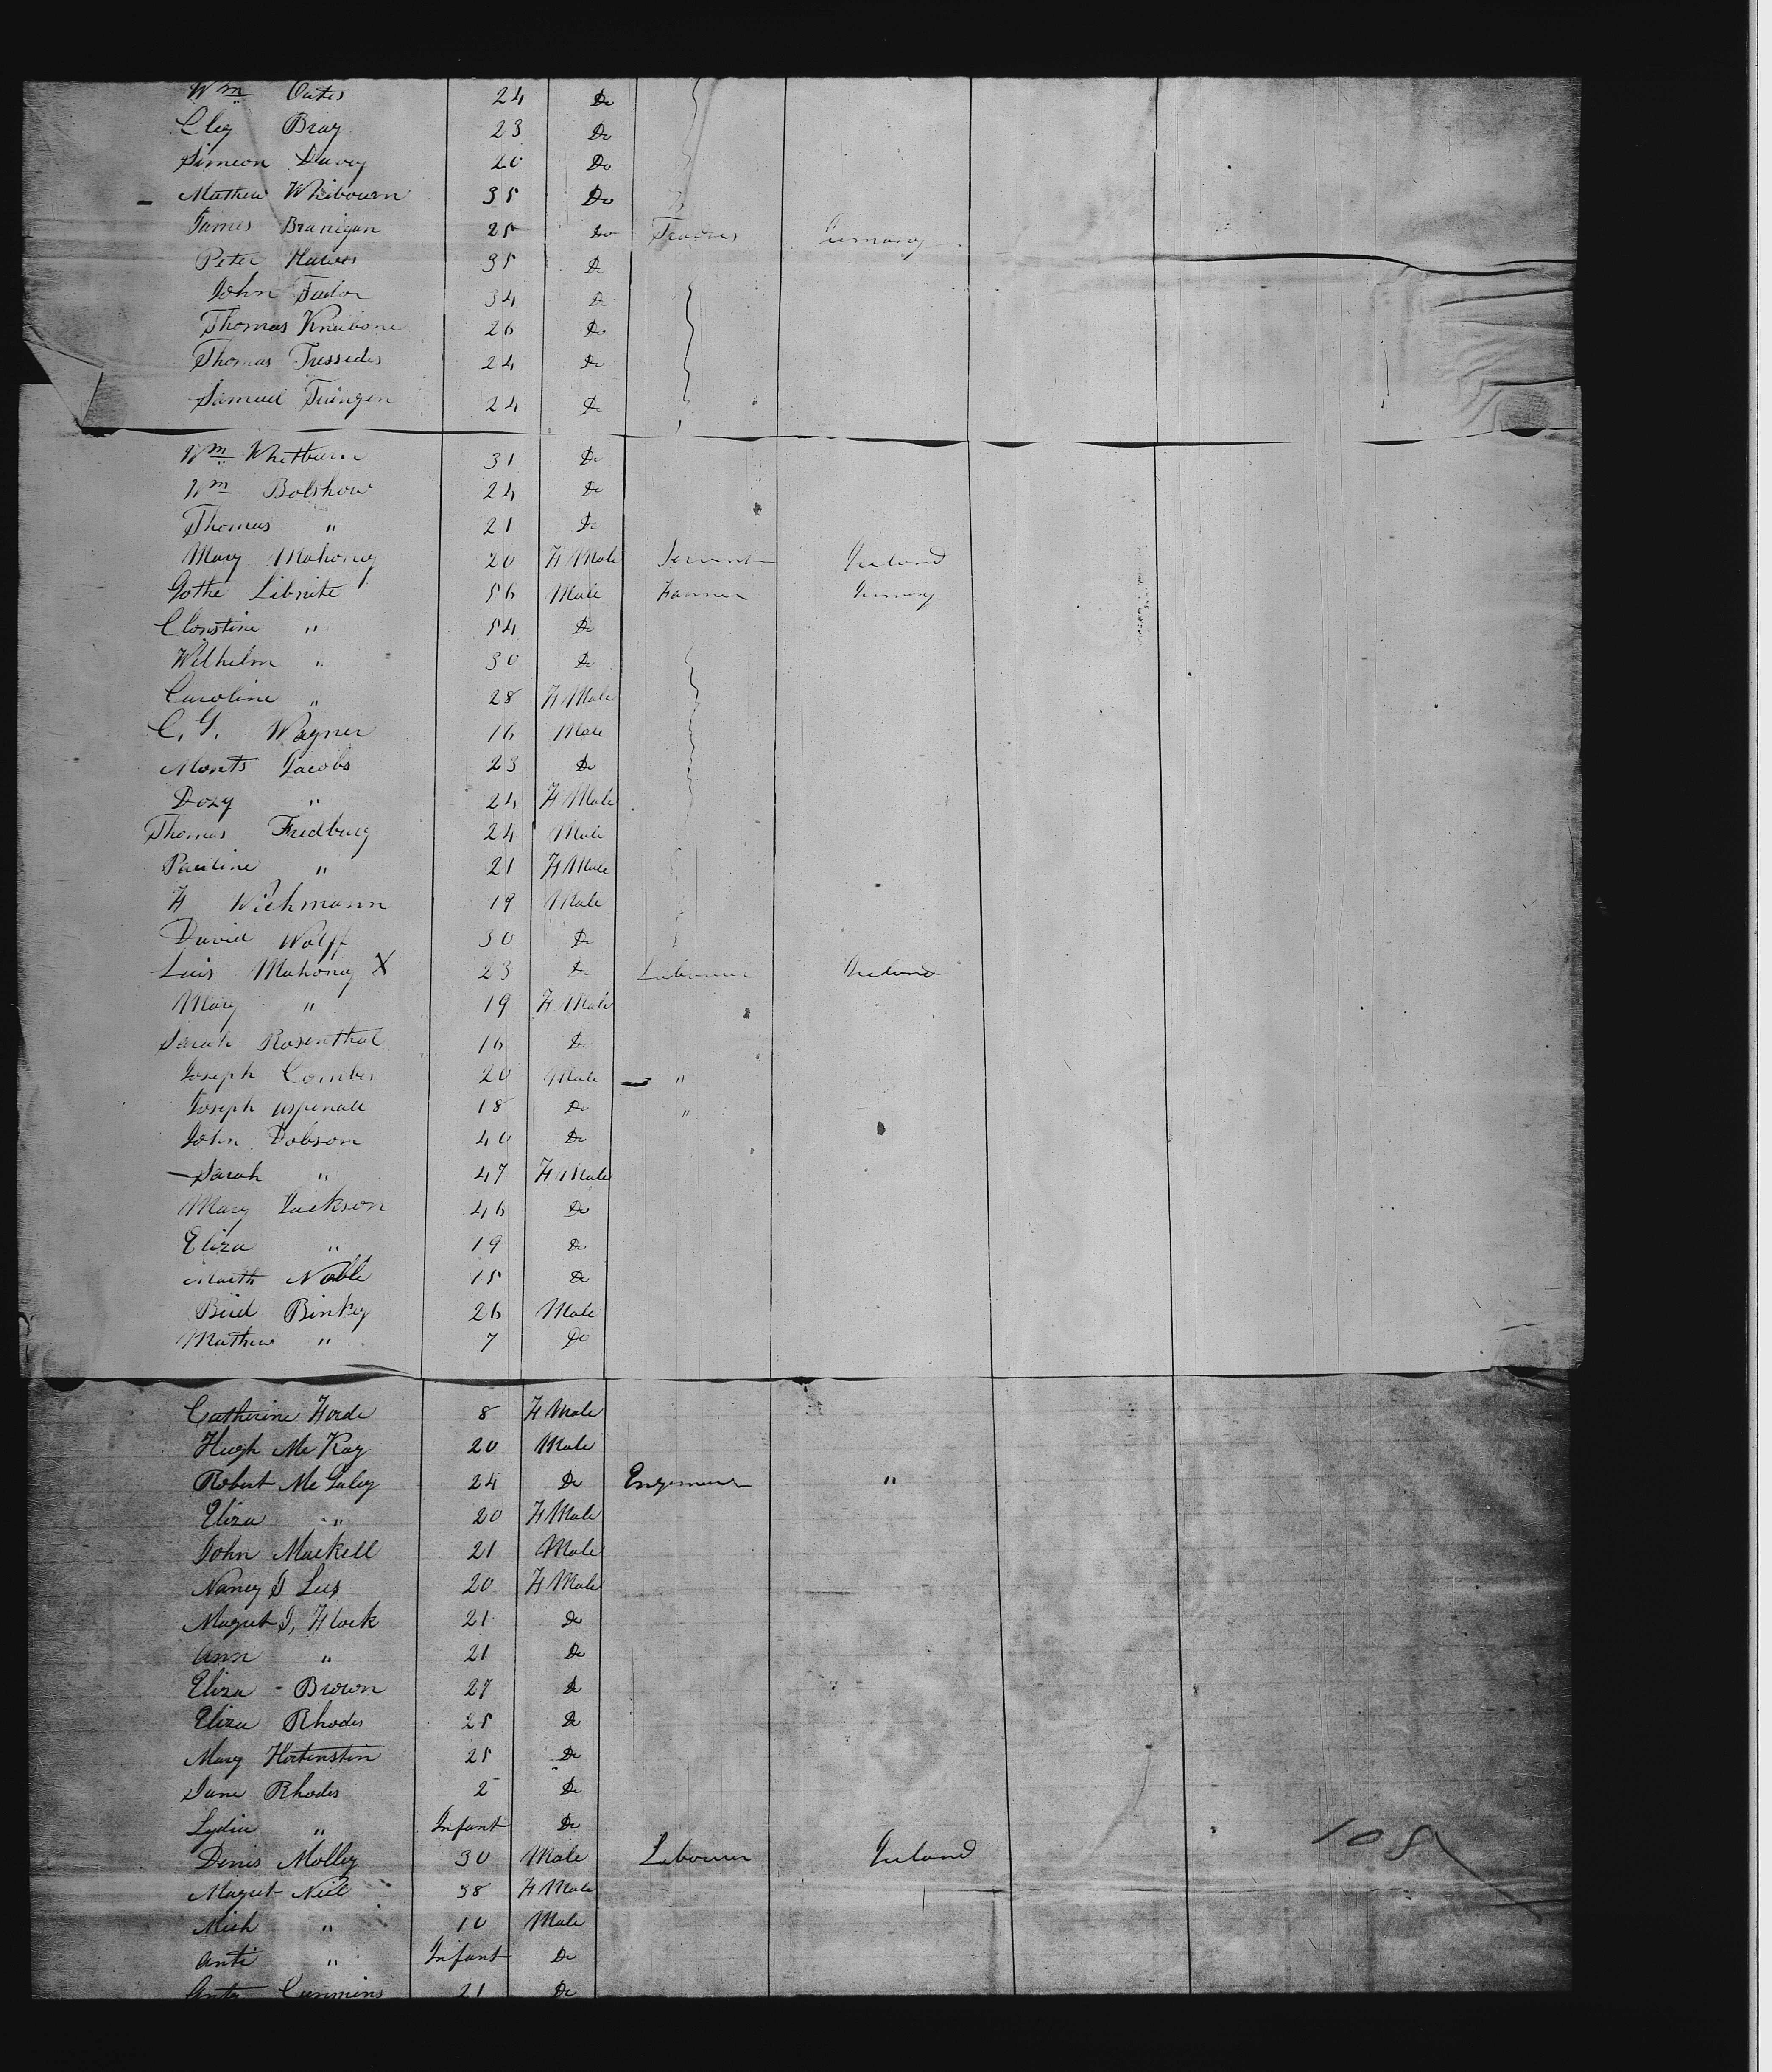 Wm Oates 24 Do
Cley Bray 23 Do
Simeon Davey 20 Do
Mathew Whibourn 35 Do
James Branigan 25 Do Germany
Peter 35 Do
John Tudor 34 Do
Thomas Kneebone 26 Do
Thomas 24 Do
Samuel 24 Do
Wm Whitburn 31 Do
Wm Bolshow 24 Do
Thomas " 21 Do
Mary Mahoney 20 F Male Servant Ireland
Gothe Libnite 56 Male Farmer Germany
Christine " 54 Do
Wilhelm " 30 Do
Caroline " 28 F Male
C. G. Wagner 16 Male
Morits Jacobs 23 Do
Dozy " 24 F Male
Thomas Fredburg 24 Male
Pauline " 21 F Male
H Wichmann 19 Male
David Wolff 30 Do
Luis Mahoney X 23 Do Labourer Ireland
Mary " 19 F Male
Sarah Rosenthal 16 Do
Joseph Comber 20 Male "
Joseph aspinall 18 Do "
John Dobson 40 Do
Sarah " 47 F Male
Mary Jackson 46 Do
Eliza " 19 Do
Noble 15 Do
Bird Binkey 26 Male
Mathew " 7 Do
Catherine Forde 8 F Male
Hugh Mc Kay 20 Male
Robert Mc Galey 24 Do Engineer "
Eliza " 20 F Male
John Mackell 21 Male
Nancy J Lees 20 F Male
Magret J, Flock 21 Do
Ann " 21 Do
Eliza - Brown 27 Do
Eliza Rhodes 25 Do
Mary Hortenstin 25 Do
Jane Rhodes 2 Do
Lydia " Infant Do
Denis Molloy 30 Male Labourer Ireland
Magret Neil 38 F Male
Mich " 10 Male
Anti " Infant Do
Cummins 21 Do
108